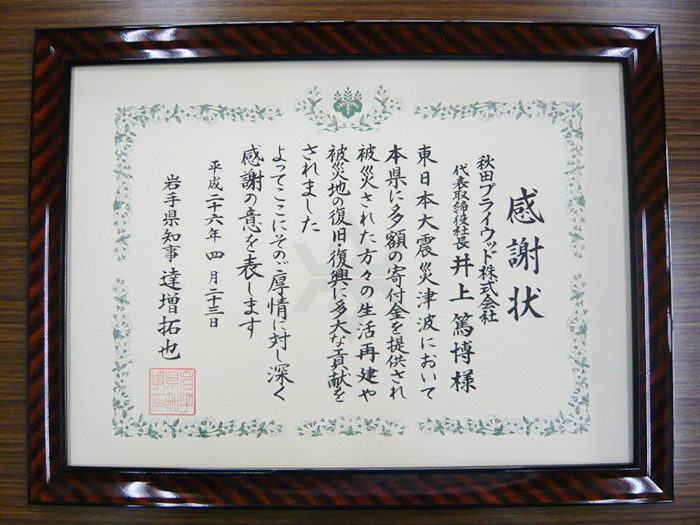 感謝状
秋田プライウッド株式会社
代表取締役社長 井上篤博様
東日本大震災津波において
本県に多額の寄付金を提供され
被災された方々の生活再建や
被災地の復旧復興に多大な貢献を
されました
よってここにそのご厚情に対し深く
感謝の意を表します
平成二十六年四月二十三日
岩手県知事 達増拓也
岩手県知事